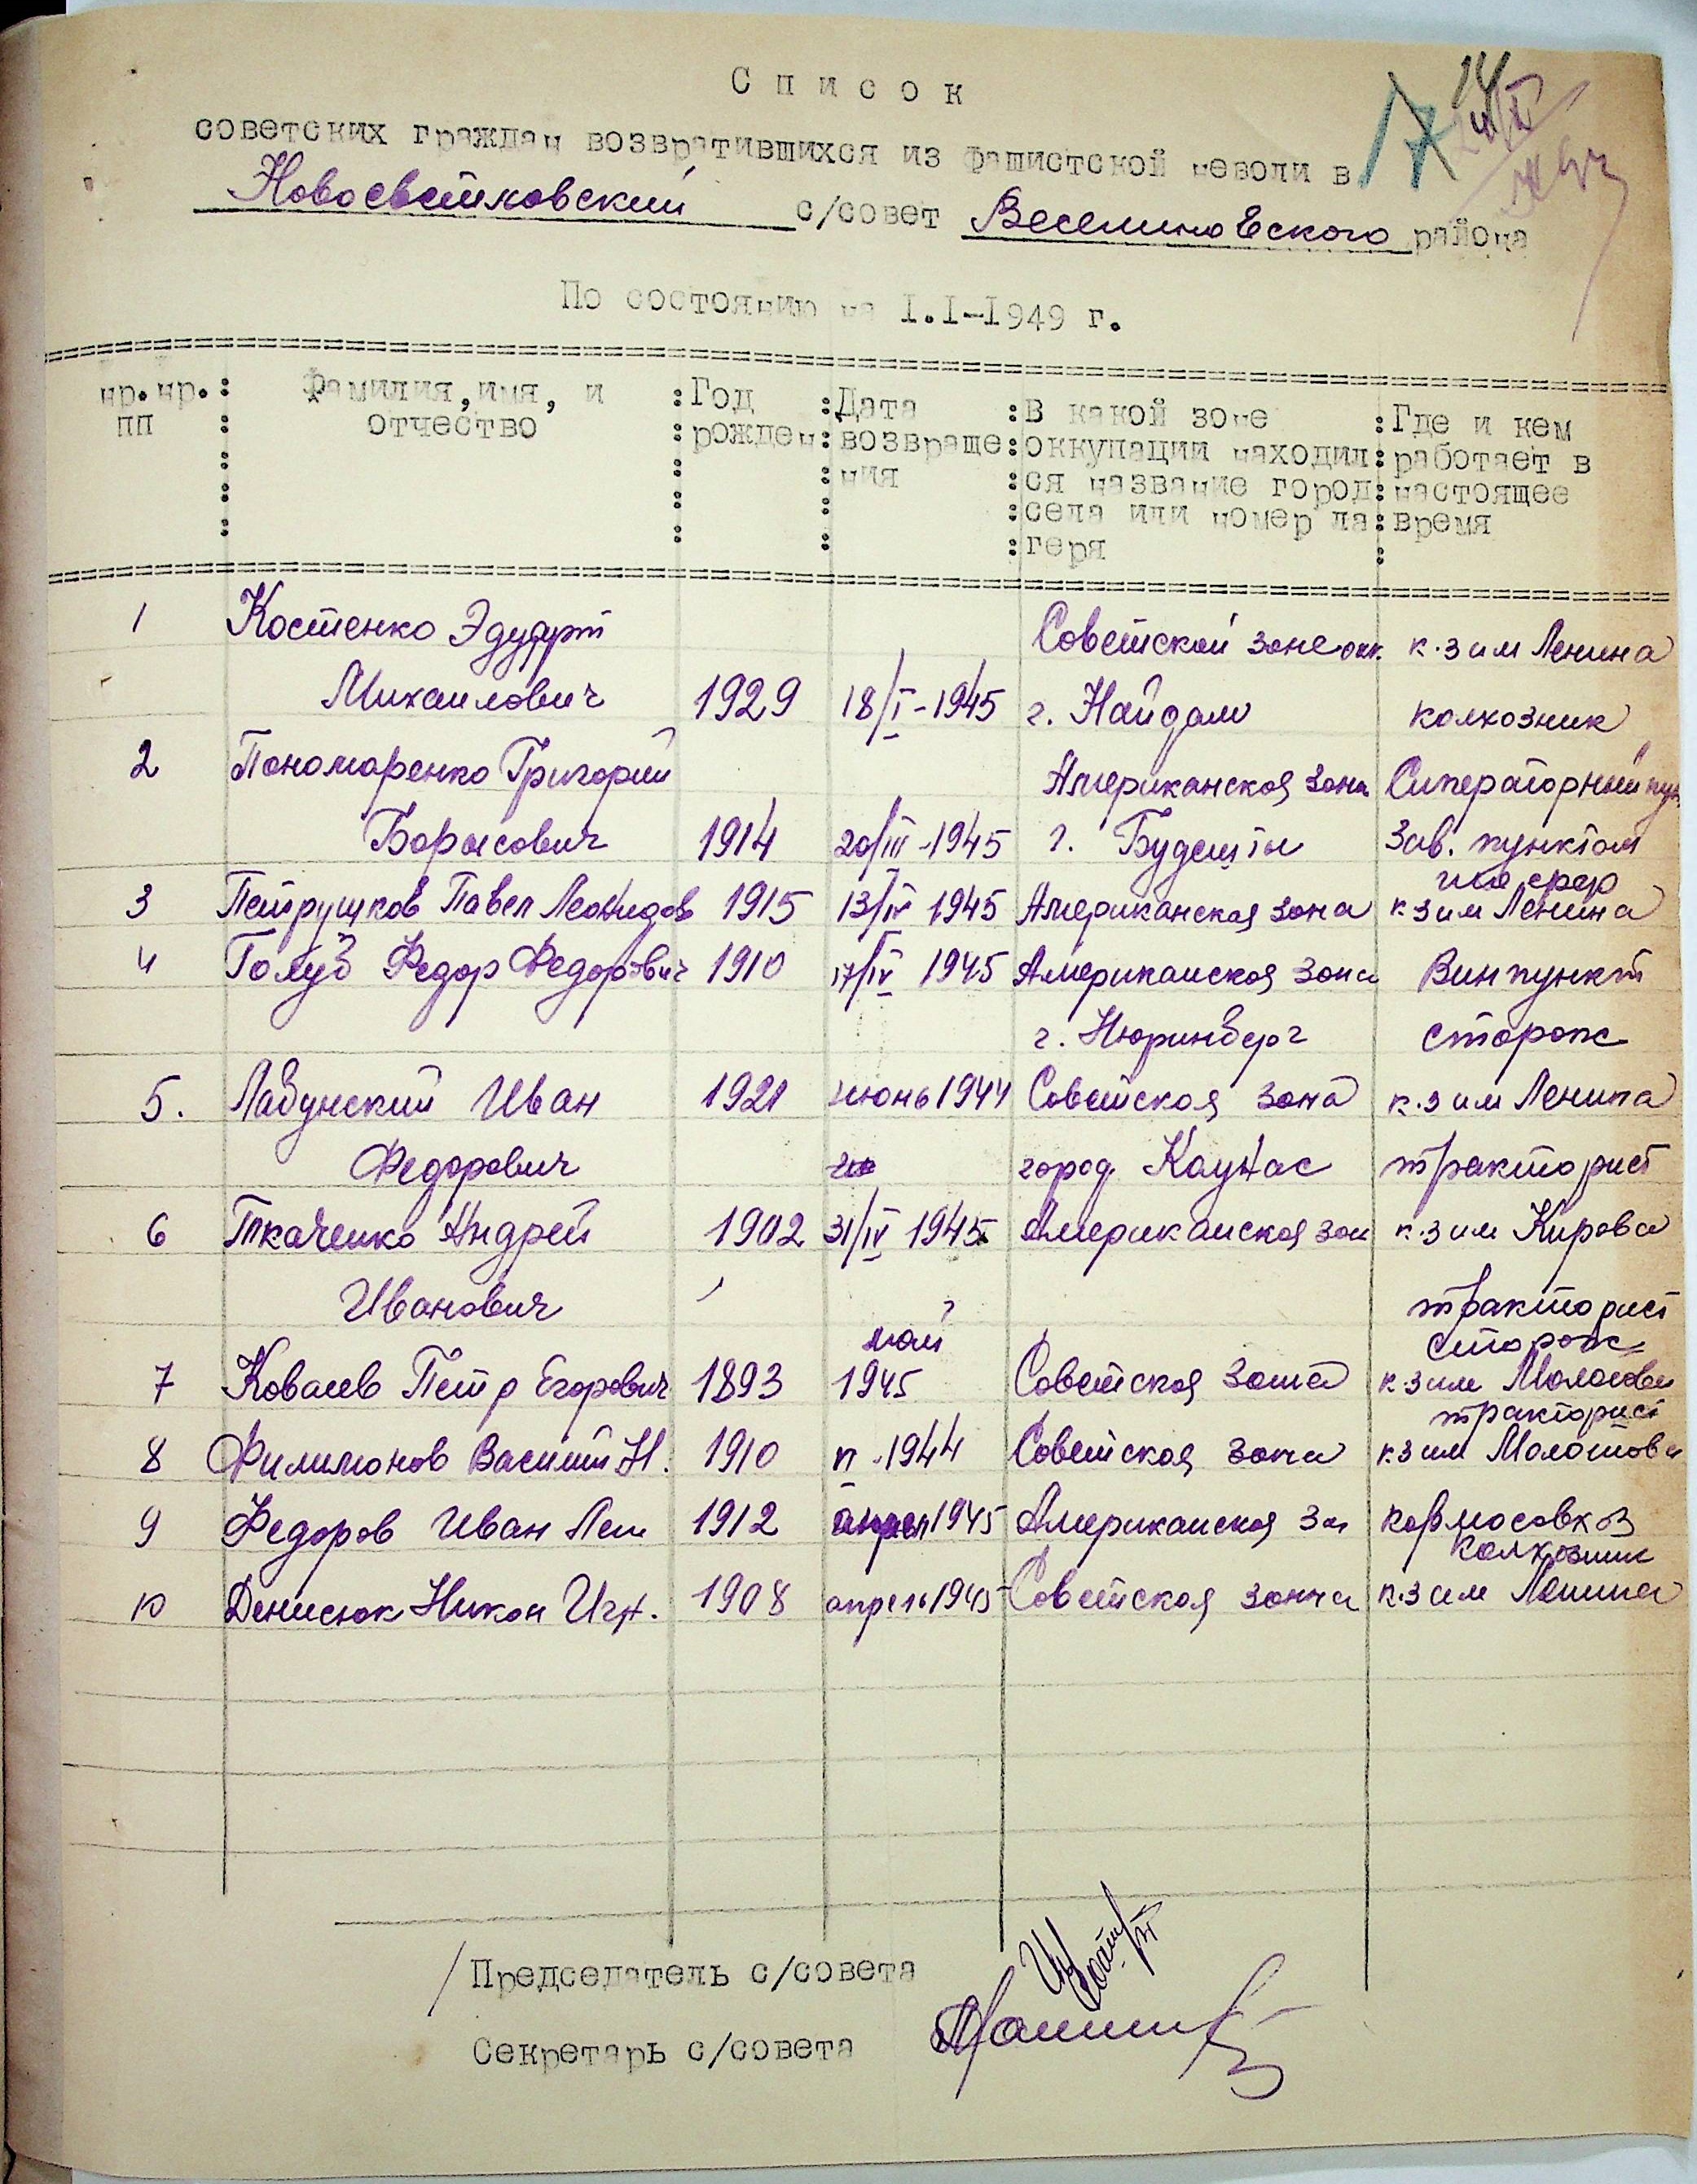 17 14
Список
советских граждан возвратившихся из фашистской неволи в
Новосветловский с/совет Веселиновского района
По состоянию на I.I-1949 г.
нр.нр. : Фамилия,имя, и : Год : Дата : В какой зоне : Где и кем
пп : отчество : рожден : возвраще : оккупации находил : работает в
: : : ния : ся название город : настоящее
: : : : села или номер ла : время
: : : : геря :
1 Костенко Эдуарт Советской зоне окк. к.з им Ленина
Михаилович 1929 18/I-1945 г. Найдам колхозник
2 Пономаренко Григорий Американская зона
Борисович 1914 20/III-1945 г. Будешты Зав. пунктом
3 Петрушков Павел Леонидов 1915 13/IV 1945 Американская зона к.з им Ленина
4 Голуб Федор Федорович 1910 17/IV 1945 Американская зона Винпункт
г. Нюринберг сторож
5. Лабунский Иван 1921 июнь 1944 Советская зона к.з им Ленина
Федорович город Каунас тракторист
6 Ткаченко Андрей 1902 31/IV 1945 Американская зон к.з им Кирова
Иванович тракторист
май сторож
7 Ковалев Петр Егорович 1893 1945 Советская зона к.з им Молотова
тракторист
8 Филимонов Василий Н. 1910 1944 Советская зона к.з им Молотова
9 Федоров Иван 1912 апрел 1945 Американская зо
колхозник
10 Денисюк Никон Игн. 1908 апрель 1945 Советская зона к.з им Ленина
/ Председатель с/совета
Секретарь с/совета